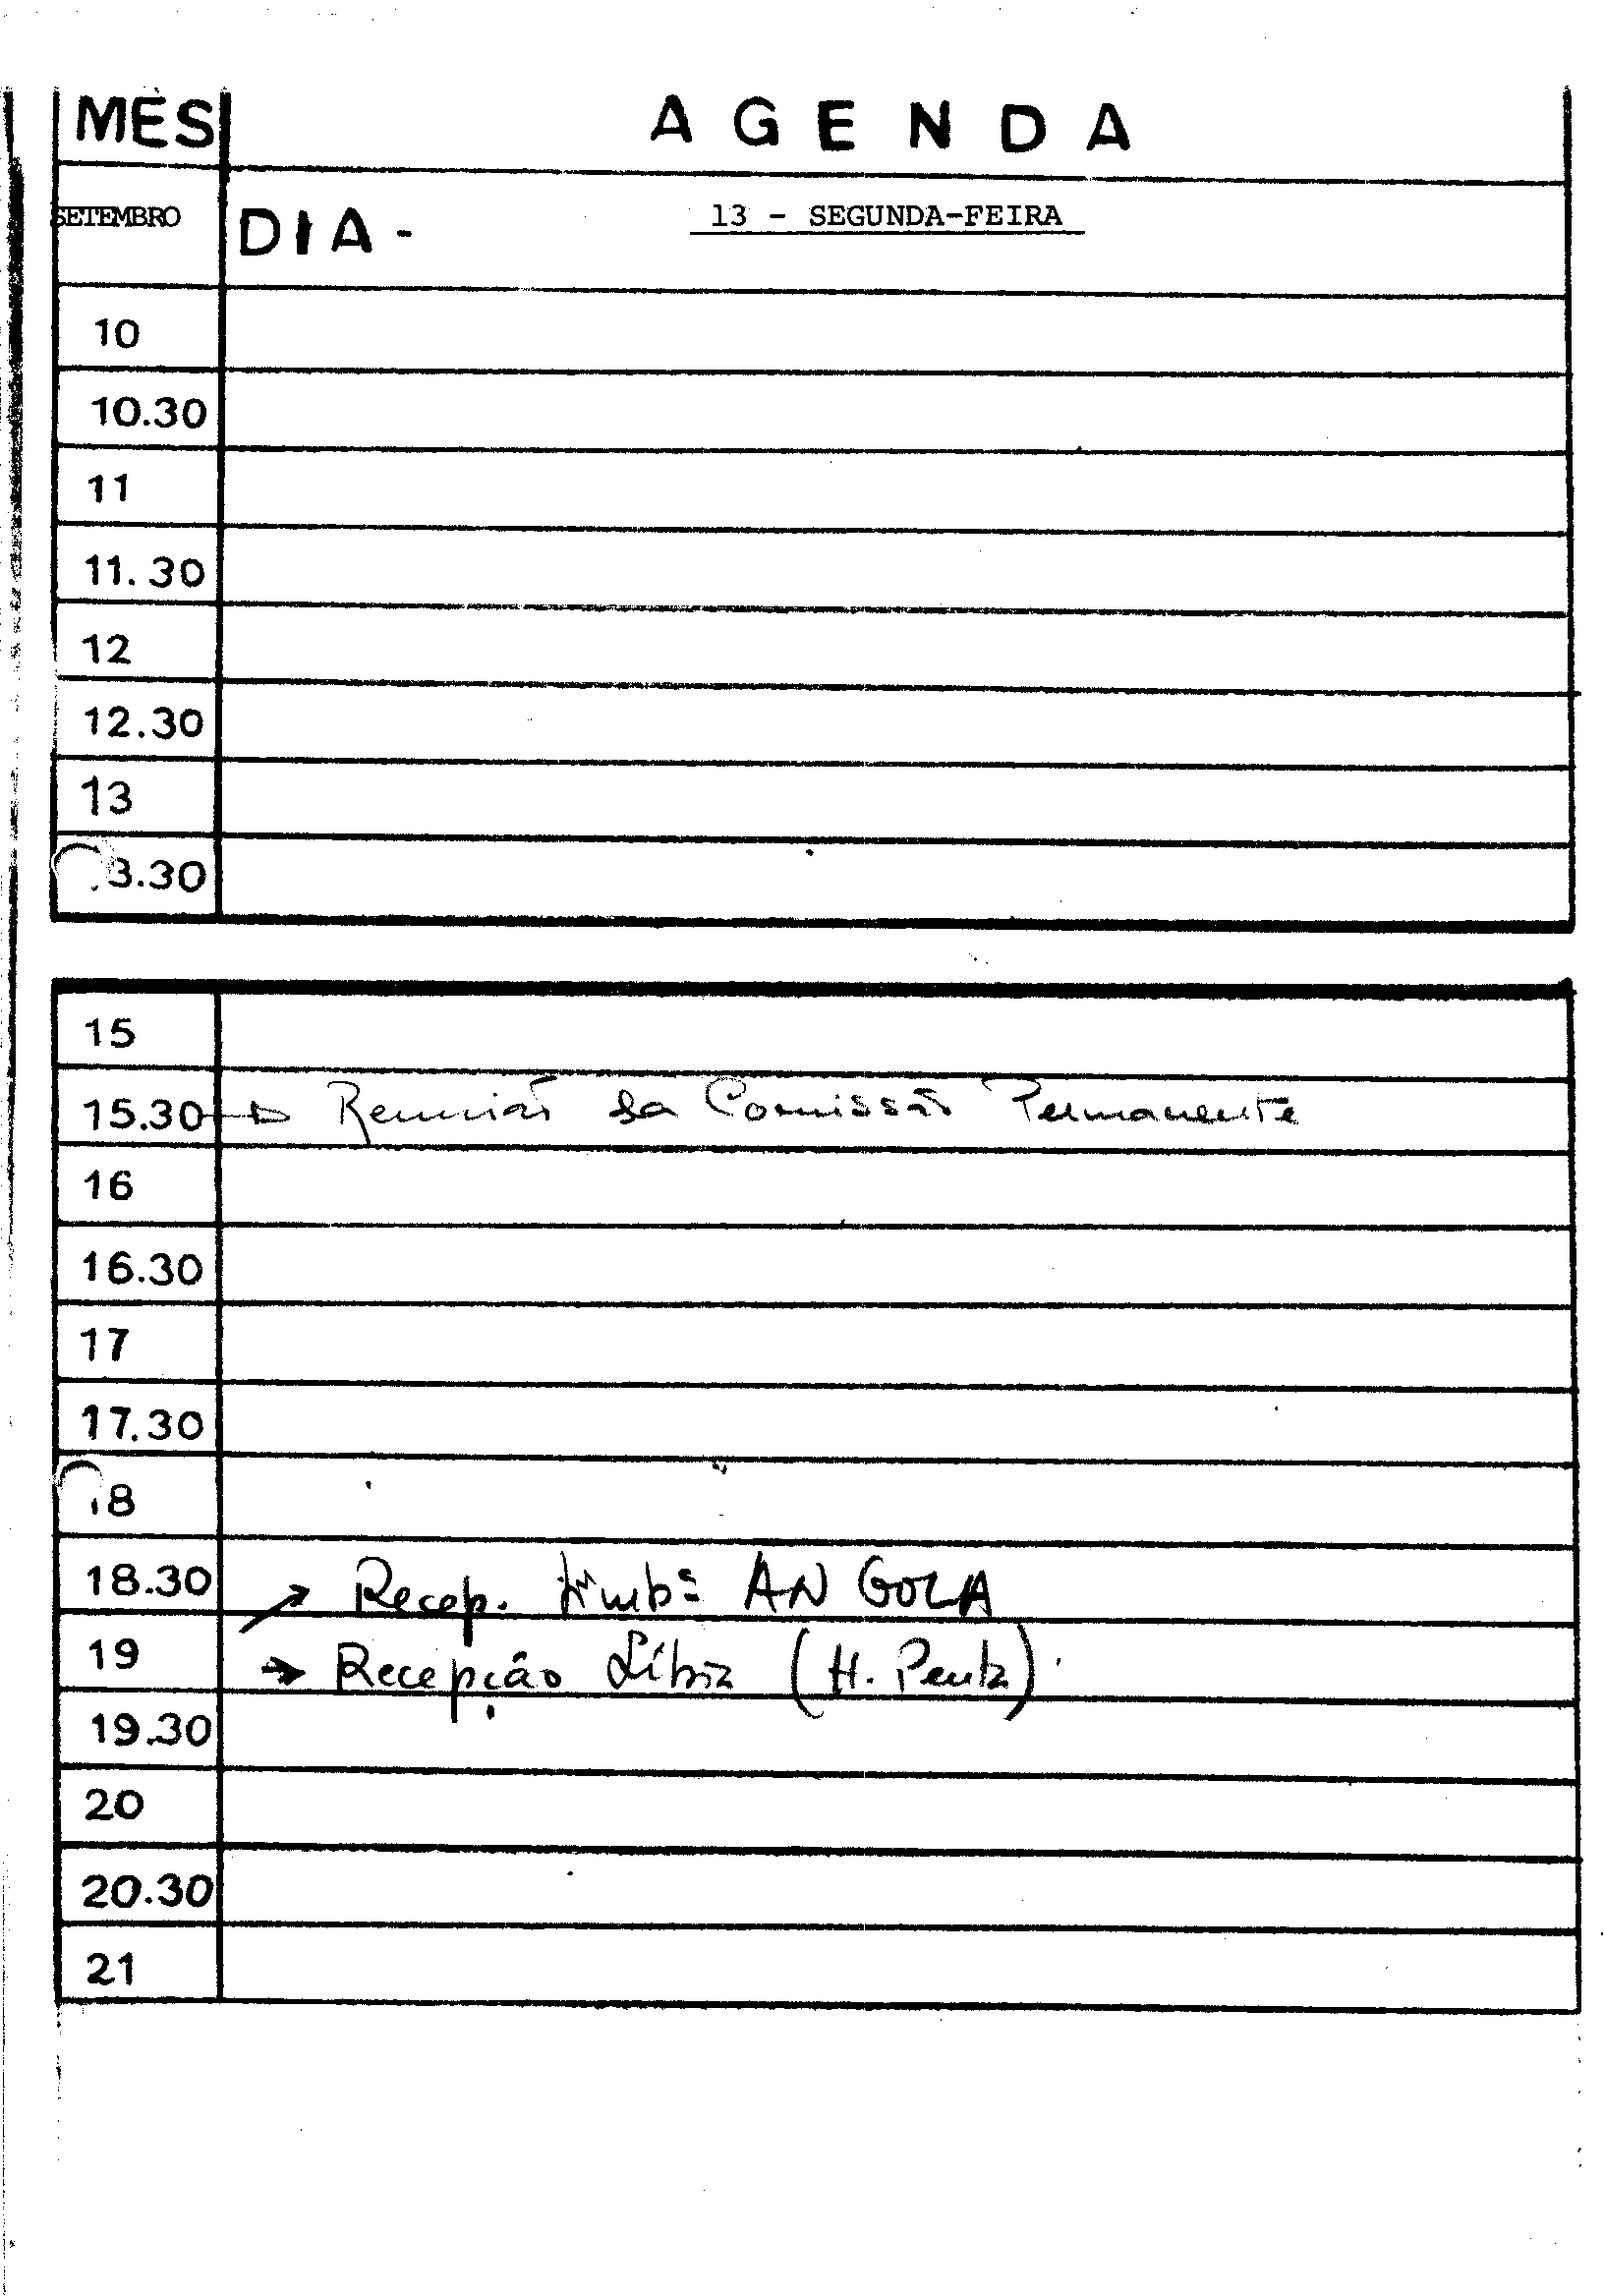 MES AGENDA
SETEMBRO DIA - 13 - SEGUNDA-FEIRA
10
10.30
11
11.30
12
12.30
13
3.30
15
15.30 Reunião da Comissão Permanente
16
16.30
17
17.30
18
18.30 Recep. Embª ANGOLA
19 Recepção Líbia (H. Penta)
19.30
20
20.30
21